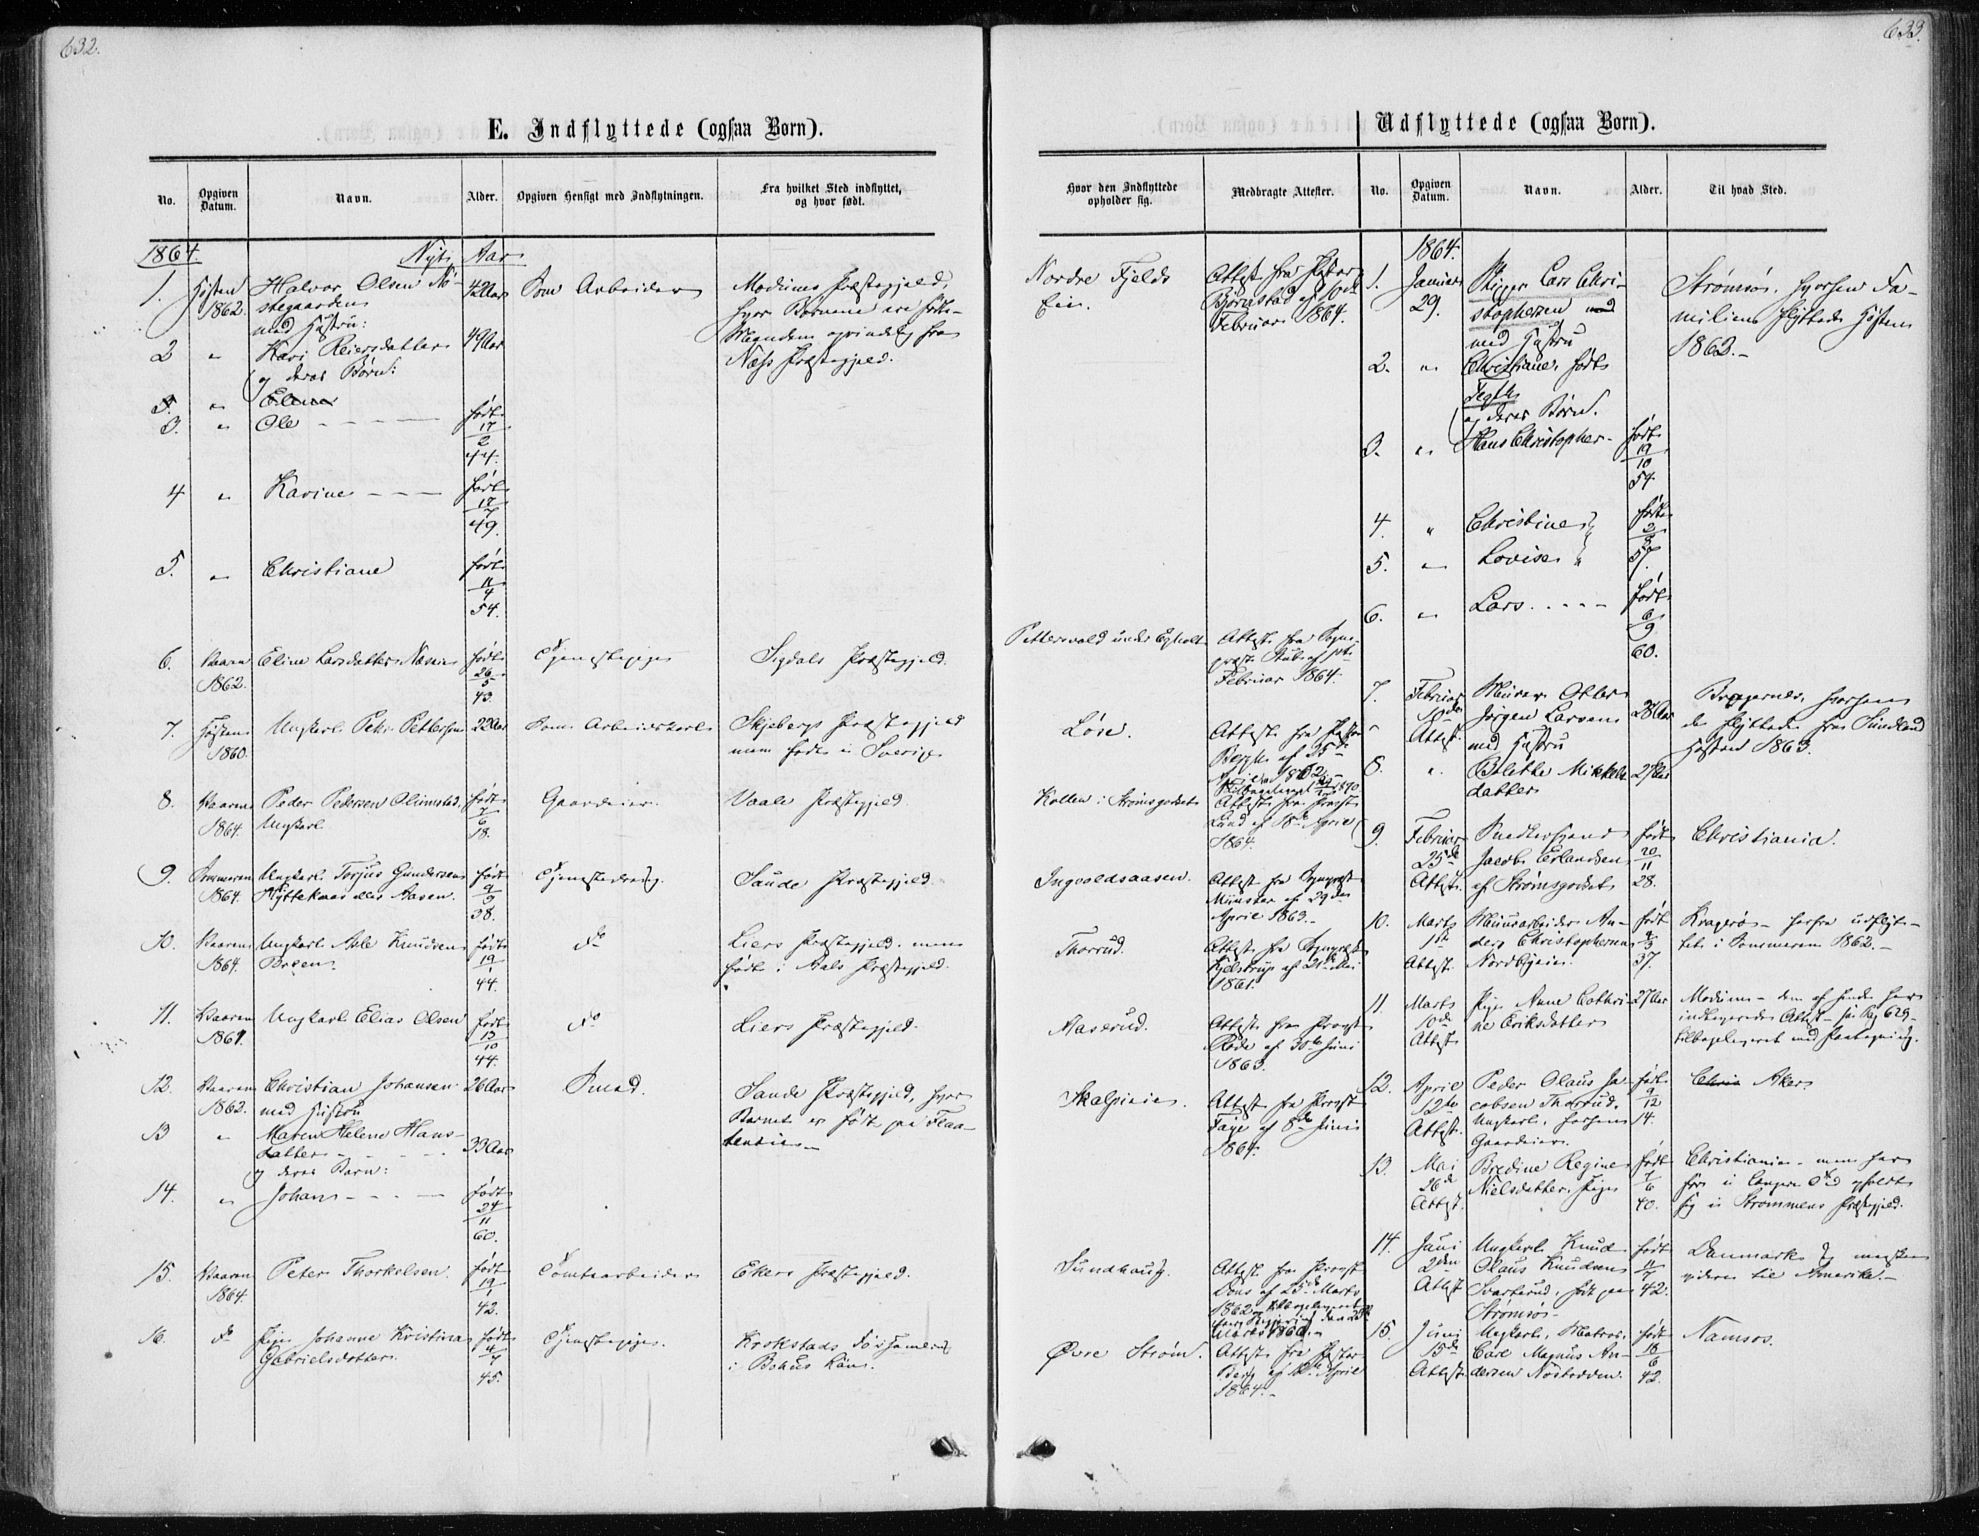 632.
E. Indflyttede (ogsaa Børn).
No.
Opgiven Datum.
Navn.
Alder.
Opgiven Hensigt med Indflytningen.
Fra hvilket Sted indflyttet, og hvor født.
Hvor den Indflyttede opholder sig.
Medbragte Attester.
1864. Nyt Aar
1. Høsten 1862. Halvor Olsen
med Hustru: 42 Aar Som Arbeider Modums Præstegjeld,
hvor Børnene ere fødte
Manden oprindelig fra
Næss Præstegjeld.
Nordre Fjelds Eie. Attest fra Pastor
Bjørnstad af
Februar 1864.
2 " Kari Reiersdatter 49 Aar
og deres Børn:
3. " Ole født 17/2 44.
4 " Karine født 17/7 49.
5. " Christiane født 11/4 54.
6. Vaaren 1862. Eline Larsdatter født 26/5 43. Tjenestepige Sigdals Præstegjeld.
Pettersvold under Attest fra Sogne-
præst Stub af
Februar 1864.
7. Høsten 1860. Ungkarl Petter Pettersen 22 Aar Som Arbeidskarl Skjeberg Præstegjeld
men født i Sverige
Løse. Attest fra Pastor
8. Vaaren 1864 Peder Pedersen Olimstad, født 7/6 18. Gaardeier. Vaale Præstegjeld.
Ungkarl
Kollen i Strømsgodset Attest fra Provst
Lund af 18de April
1864.
9. Sommeren 1864. Ungkarl Torjus Gundersen født 9/9 38. Tjenestedreng. Saude Præstegjeld.
eller Aasen.
Ingvoldsaasen. Attest fra Sognepræst
Münster af 29de
April 1863.
10. Vaaren 1864. Ungkarl Asle Knudsen født 19/1 44. Do Liers Præstegjeld. men
Breen. født i Aals Præstegjeld.
Thorrud. Attest fra Sognepræst
Kjelstrup af 21de Mai
1861.
11. Vaaren 1864. Ungkarl Elias Olsen født 13/10 44. Do Liers Præstegjeld.
Attest fra Provst
Rode af 30te Juni
1863.
12. Vaaren 1862. Christian Johansen 26 Aar Smed. Sande Præstegjeld, hvor
med Hustru Barnet er født paa
Skalpieie. Attest fra Provst
Faye af 8de Juni
1864.
13 " Maren Helene Hans-
datter 33 Aar
og deres Barn:
14. " Johan født 24/11 60.
15. Vaaren 1864. Peter Thorkelsen. født 19/1 42. Tomtearbeider Ekers Præstegjeld.
Sundhaug. Attest fra Provst
Dons af 25de Marts
1862
16. Do Pige Johanne Kristina født 4/7 45. Tjenestepige. Krokstads
Gabrielsdatter. i Bohus Län.
Øvre Strøm. Attest fra Pastor
Berg af April
1864.
633.
Udflyttede (ogsaa Børn).
No.
Opgiven Datum.
Navn.
Alder.
Til hvad Sted.
1864.
1. Januar 29. Skipper Lars Chri-
stophersen
med Hustru
Strømsø. hvorhen Fa-
milien flyttede Høsten
1863.
2. " Christiane, født
og deres Børn.
3. " Hans Christopher født 19/10 54.
4. " Christine født 2/8 57.
5. " Lovise "
6. " Lars født 6/9 60.
7. Februar Attest. Murer Otter
Jørgen Larsen 28 Aar
med Hustru
Bragernes, hvorhen
de flyttede fra Sundland
Høsten 1863.
8. " Bolette Mikkels-
datter 27 Aar
9. Februar 25de Attest. Snedkersvend født 20/11 28. Christiania.
Jacob Erlandsen
af Strømsgodset
10. Marts 1ste Attest. Muurarbeider An-
ders Christophersen født 9/3 37.
Nordbyeie.
Kragerø - herfra udflyt-
tet i Sommeren 1862.
11 Marts 10de Attest. Pige Anne Cathri-
ne Eriksdatter 27 Aar
Modum - den af hende her
indleverede Attest - Pag 629 -
tilbageleveret med Paategning.
12. April 12te Attest. Peder Olaus Ja-
cobsen Thorrud. født 9/12 14. Akers
Ungkarl, forhen
Gaardeier.
13. Mai 26de Attest. Bredine Regine
Nielsdatter. Pige født 7/6 40.
Christiania - men har
før i længere Tid opholdt
sig i Strømmens Præstegjeld.
14. Juni 2den Attest Ungkarl Knud
Olaus Knudsen født 11/7 42.
Svarterud, født paa
Strømsø.
Danmark og maaskee
videre til Amerika.
15. Juni 15de Attest. Ungkarl, Matros,
Carl Magnus An-
dersen født 18/6 42. Namsos.